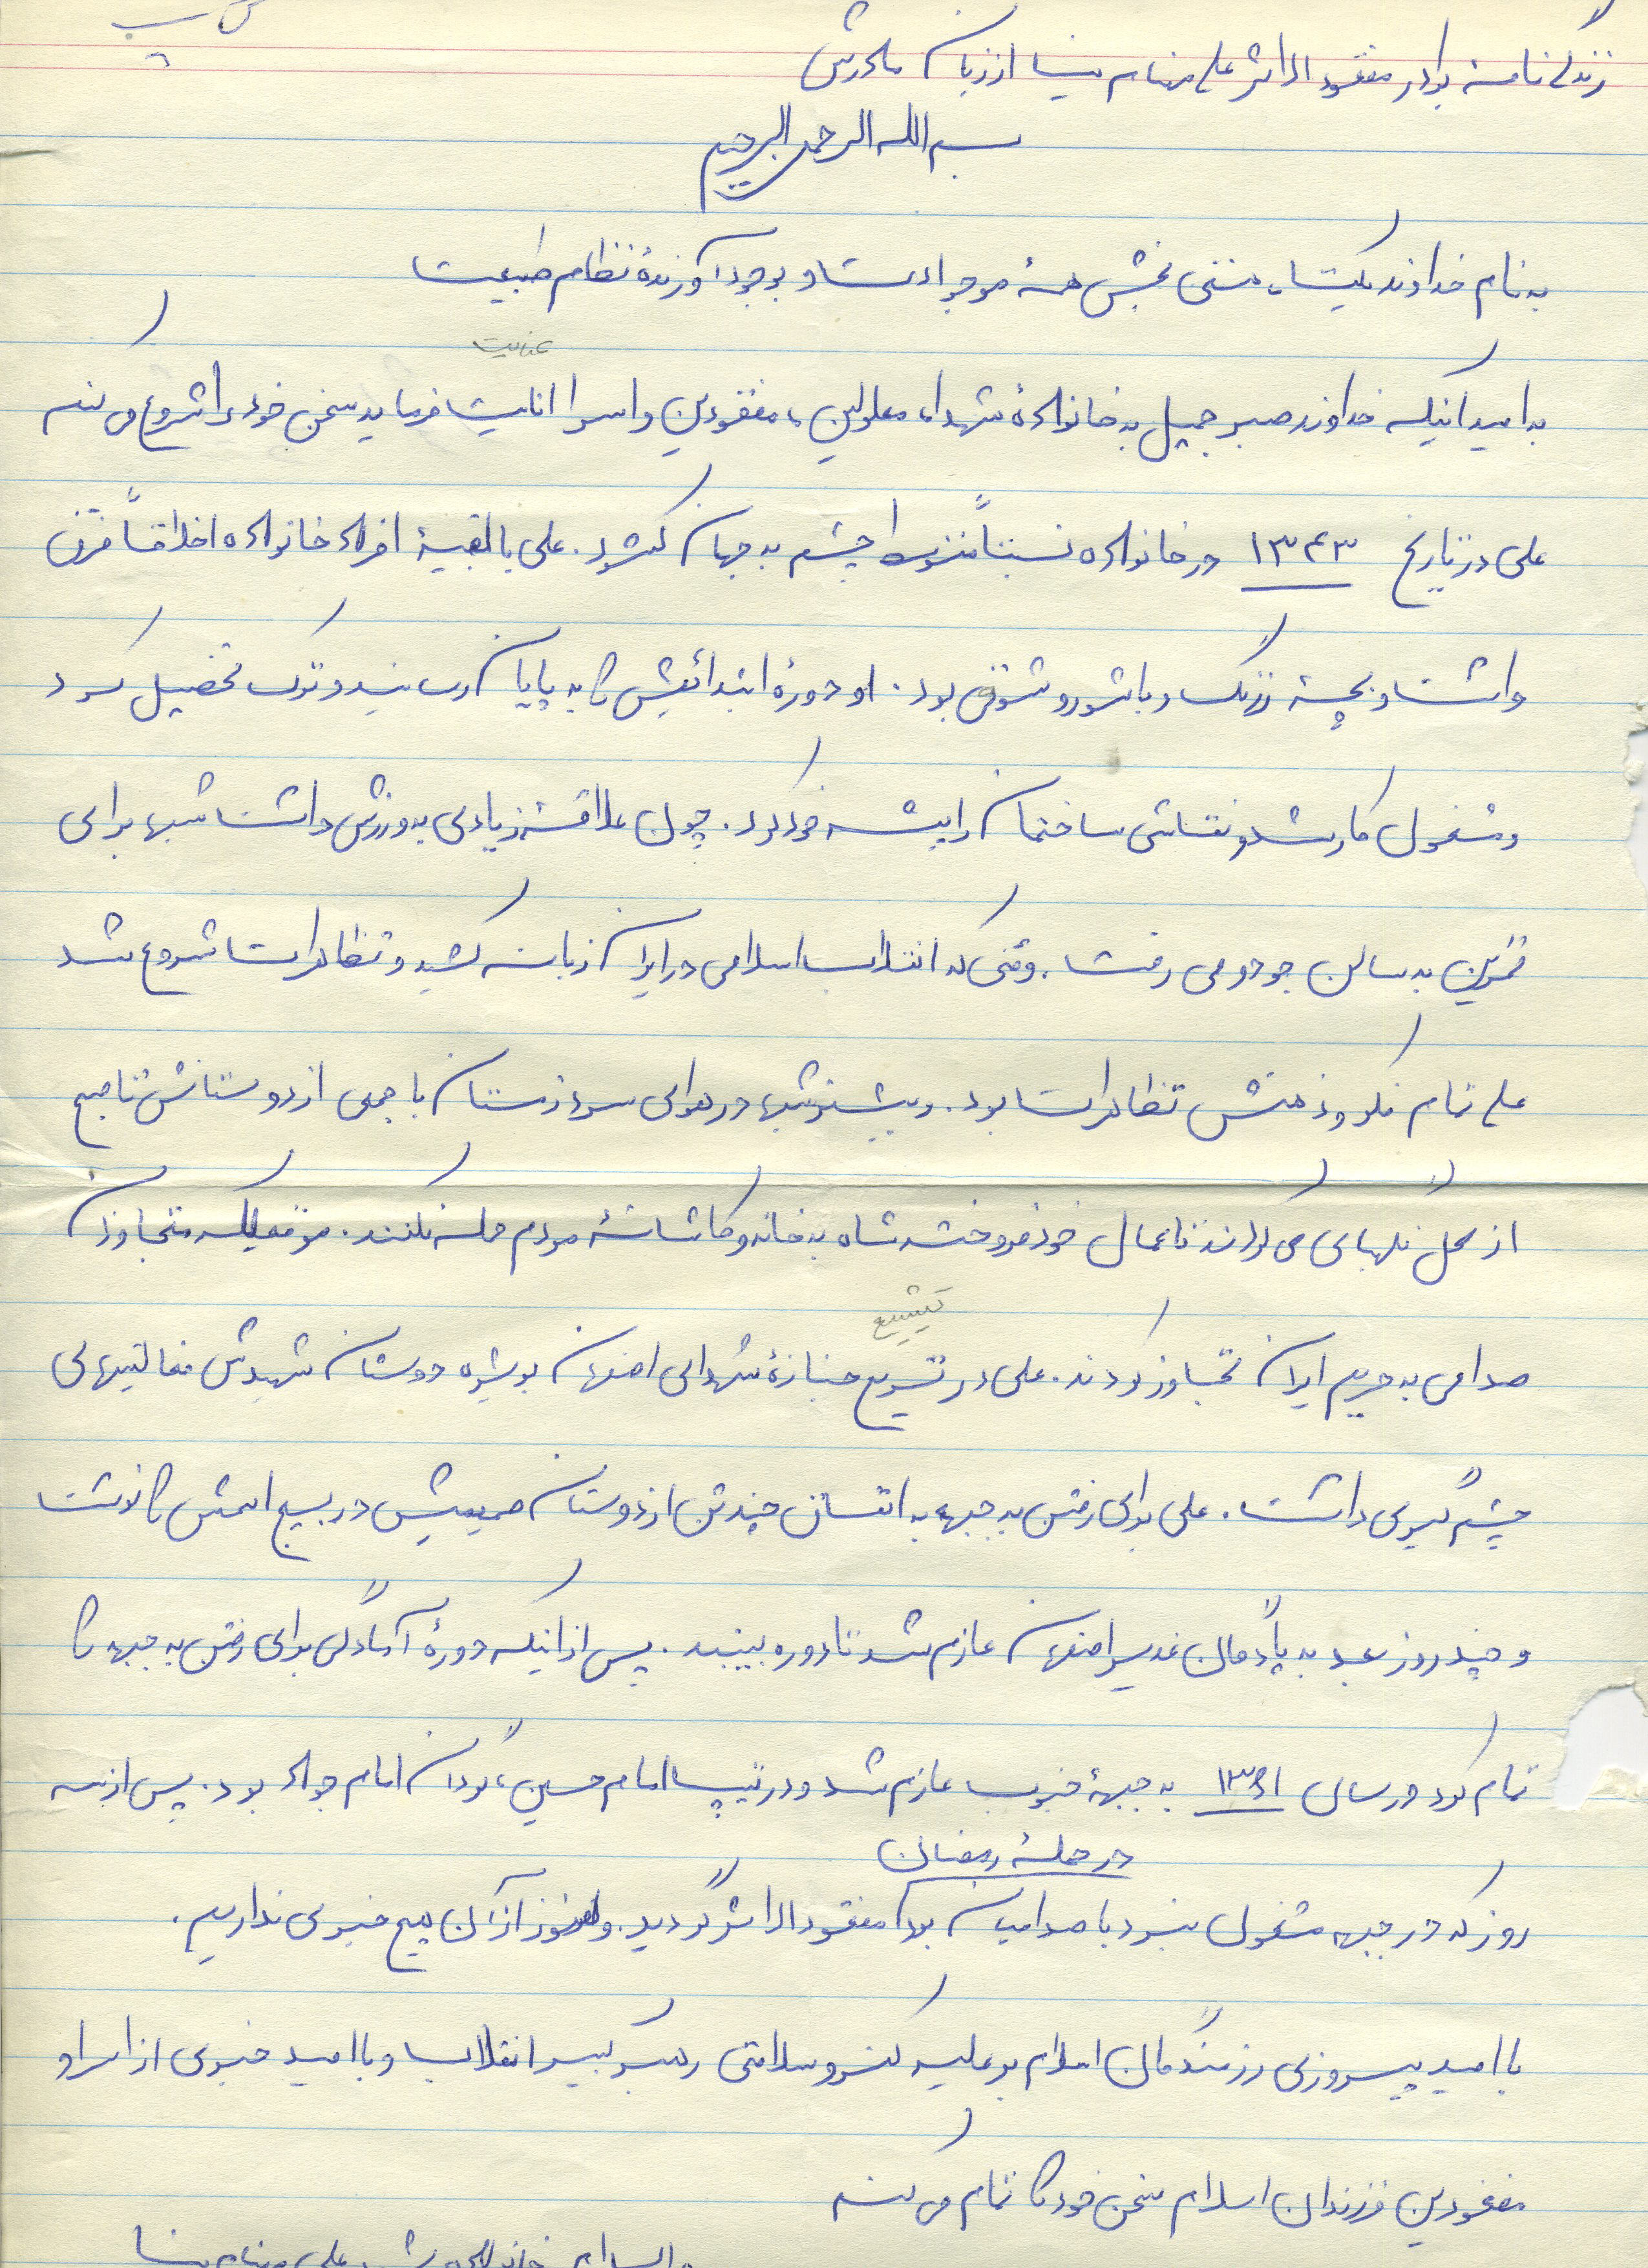 زندگی نامه برادر مفقودالاثر علی بهنام نیسا از زبان مادرش
بسم الله الرحمن الرحیم
به نام خداوند یکتا، هستی بخش همهٔ موجودات و بوجود آورندهٔ نظام طبیعت
عنایت
به امید اینکه خداوند صبر جمیل به خانوادهٔ شهدا، معلولین، مفقودین و اسرا انایت فرماید سخن خود را شروع می کنم
علی در تاریخ ۱۳۴۳ در خانواده نسبتاً متوسط چشم به جهان گشود. علی با بقیهٔ افراد خانواده اخلاقاً فرق
داشت و بچهٔ زرنگ و با شور و شوقی بود. او دورهٔ ابتدائیش را به پایان رسانید و ترک تحصیل کرد
و مشغول کار شد و نقاشی ساختمان را پیشه خود کرد. چون علاقهٔ زیادی به ورزش داشت شبها برای
تمرین به سالن جودو می رفت. وقتی که انقلاب اسلامی در ایران زبانه کشید و تظاهرات شروع شد
علی تمام فکر و ذهنش تظاهرات بود. و بیشتر شبها در هوای سرد زمستان با جمعی از دوستانش تا صبح
از محل نگهبانی می دادند تا عمال خود فروخته شاه به خانه و کاشانهٔ مردم حمله نکنند. موقعیکه متجاوزان
تشییع
صدامی به حریم ایران تجاوز کردند. علی در تشریع جنازهٔ شهدای اصفهان بویژه دوستان شهیدش فعالیتهای
چشم گیری داشت. علی برای رفتن به جبهه به اتفاق چند تن از دوستان صمیمیش در بسیج اسمش را نوشت
و چند روز بعد به پادگان غدیر اصفهان عازم شد تا دوره ببیند. پس از اینکه دورهٔ آمادگی برای رفتن به جبهه را
تمام کرد در سال ۱۳۶۱ به جبههٔ جنوب عازم شد و در تیپ امام حسین، گردان امام جواد بود. پس از سه
در حملهٔ رمضان
روز که در جبهه مشغول نبرد با صدامیان بود مفقودالاثر گردید. و هنوز از آن هیچ خبری نداریم.
با امید پیروزی رزمندگان اسلام بر علیه کفر و سلامتی رهبر کبیر انقلاب و با امید خبری از اسرا و
مفقودین فرزندان اسلام سخن خود را تمام می کنم
والسلام خانواده شهید علی بهنام نیسا